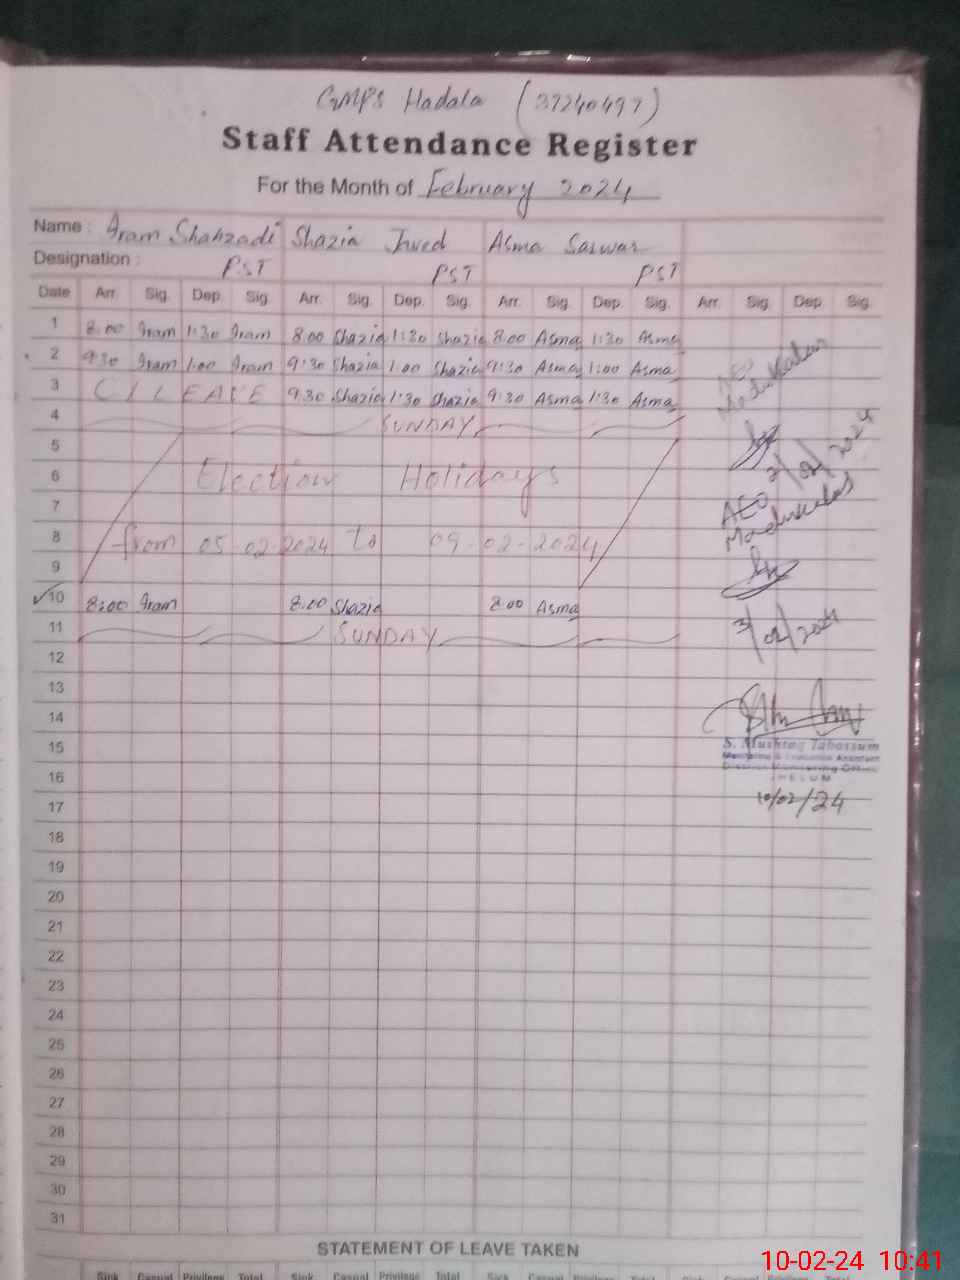 GMPS Hadala (37240497)
Staff Attendance Register
For the Month of February 2024
Name : Iram Shahzadi Shazia Javed Asma Sarwar
Designation : PST PST PST
Date Arr. Sig. Dep. Sig. Arr. Sig. Dep. Sig. Arr. Sig. Dep. Sig. Arr. Sig. Dep. Sig.
1 8:00 Iram 1:30 Iram 8:00 Shazia 1:30 Shazia 8:00 Asma 1:30 Asma
2 9:30 Iram 1:00 Iram 9:30 Shazia 1:00 Shazia 9:30 Asma 1:00 Asma
3 C/LEAVE 9:30 Shazia 1:30 Shazia 9:30 Asma 1:30 Asma
4 SUNDAY
5
6 Election Holidays
7
8 from 05-02-2024 to 09-02-2024
9
10 8:00 Iram 8:00 Shazia 8:00 Asma
11 SUNDAY
12
13
14
15
16
17
18
19
20
21
22
23
24
25
26
27
28
29
30
31
AEO
2/02/2024
AEO
3/02/2024
S. Mushtaq Tabassum
Monitoring & Evaluation Assistant
District Monitoring Office
JHELUM
10/02/24
STATEMENT OF LEAVE TAKEN
Sick Casual Privilege Total Sick Casual Privilege Total Sick Casual Privilege Total Sick Casual Privilege Total
10-02-24 10:41